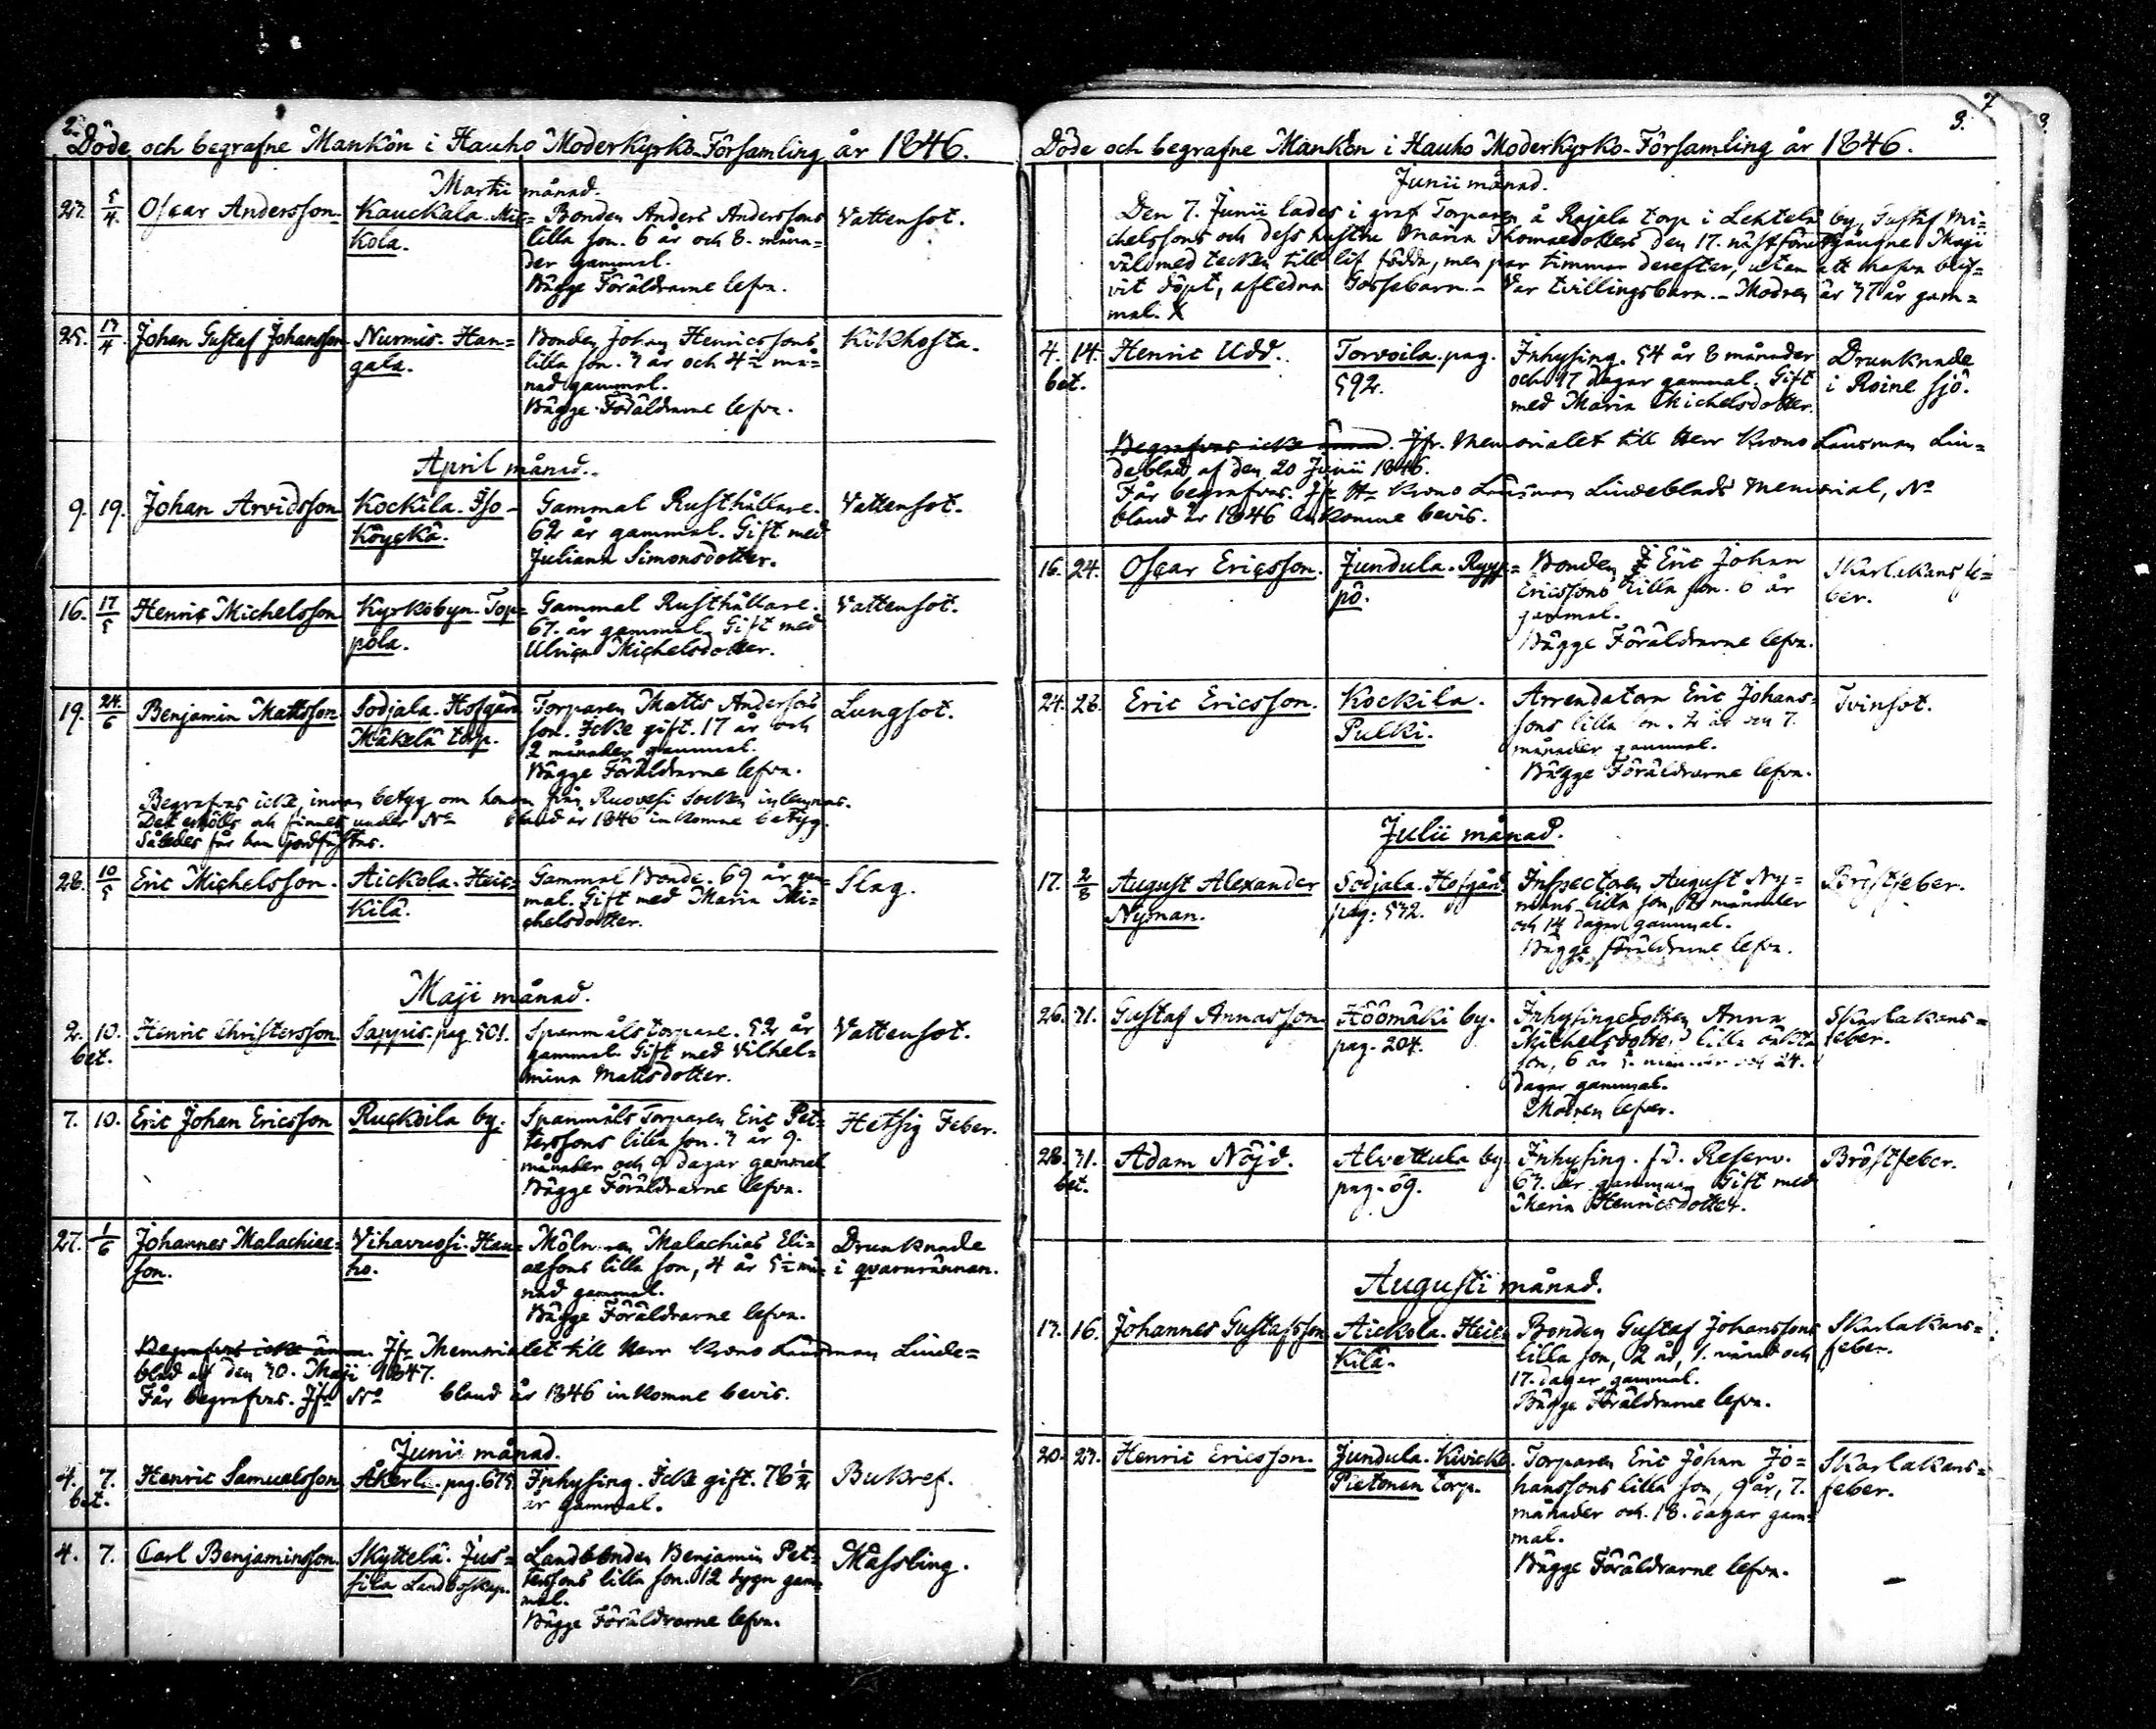 2.
Döde och begrafne Mankön i Hauho Moderkyrko-Församling år 1846.
Martii månad.
27. 5/4. Oscar Andersson. Kauckala. Mic= Bonden Anders Anderssons Vattensot.
kola. lilla son. 6 år och 8. måna=
der gammal.
Bägge Föräldrarne lefva.
25. 13/4 Johan Gustaf Johansson Nurmis. Han= Bonden Johan Henricssons Kikhosta.
gala. lilla son. 3 år och 4½ må=
nad gammal.
Bägge Föräldrarne lefva.
April månad.
9. 19. Johan Arvidsson Kockila. Iso- Gammal Rusthållare. Vattensot.
Köyckä. 62 år gammal. Gift med
Juliana Simonsdotter.
16. 17/5 Henric Michelsson Kyrkobyn. Top= Gammal Rusthållare. Vattensot.
pola. 67. år gammal. Gift med
Ulrica Michelsdotter.
19. 24./6 Benjamin Mattsson Sodjala. Hofgård Torparen Matts Anderssons Lungsot.
Mäkelä torp. son. Icke gift. 17 år och
2 månader gammal.
Bägge Föräldrarne lefva.
Begrafvas icke, innan betyg om honom från Ruovesi Socken inlemnas.
Det erhölls och finnes under No bland år 1846 inkomne betyg.
Således får han jordfästas.
28. 10/5 Eric Michelsson. Aickola. Heic= Gammal Bonde. 69 år gam= Slag.
kilä. mal. Gift med Maria Mi=
chelsdotter.
Maji månad.
2. 10. Henric Christersson. Sappis. pag. 501. Spanmålstorpare. 52 år Vattensot.
bet. gammal. Gift med Vilhel=
mina Mattsdotter.
7. 10. Eric Johan Ericsson Ruckoila by. Spanmåls Torparen Eric Pet= Hetsig Feber.
terssons lilla son. 3 år 9.
månader och 9 dagar gammal
Bägge Föräldrarne lefva.
27. 1/6 Johannes Malachiae= Vihavuosi. Hau= Mölnaren Malachias Eli= Drunknade
son. ho. aesons lilla son, 4 år 5½ må= i qvarnrännan.
nad gammal.
Bägge Föräldrarne lefva.
Begrafvas icke ännu. Jfr Memorialet till Herr Krono Länsman Linde=
blad af den 30. Maji 1847.
Får begrafvas. Jfr No bland år 1846 inkomne bevis.
Junii månad.
4. 7. Henric Samuelsson Åkerla. pag. 675. Inhysing. Icke gift. 78½ Bukref.
bet. år gammal.
4. 7. Carl Benjaminsson. Skyttelä. Jus= Landbonden Benjamin Pet= Mässling.
sila Landboskap. terssons lilla son. 12 dygn gam=
mal.
Bägge Föräldrarne lefva.
3.
Döde och begrafne Mankön i Hauho Moderkyrko-Församling år 1846.
Junii månad.
Den 7. Junii lades i graf Torparen å Rajala torp i Lehtelä by, Gustaf Mi=
chelssons och dess hustru Maria Thomaedotters den 17. näst föregångne Maji
väl med tecken till lif födda, men par timmar derefter, utan att hafva blif=
vit döpt, aflednа Gossebarn. - Var tvillingsbarn. - Modren är 37 år gam=
mal. X
4. 14. Henric Udd. Torvoila. pag. Inhysing. 54 år 8 månader Drunknade
bet. 592. och 17 dagar gammal. Gift i Roine sjö.
med Maria Michelsdotter.
Begrafvas icke ännu. Jfr. Memorialet till Herr Krono Länsman Lin=
deblad af den 20 Junii 1846.
Får begrafvas. Jfr Hr Krono Länsman Lindeblads Memorial, No
bland år 1846 inkomne bevis.
16. 24. Oscar Ericsson. Jundula. Rypp= Bonden Eric Johan Skarlakans fe=
pö. Ericssons lilla son. 6 år ber.
gammal.
Bägge Föräldrarne lefva.
24. 28. Eric Ericsson. Kockila. Arrendatorn Eric Johans= Tvinsot.
Pulki. sons lilla son. 2 år och 7.
månader gammal.
Bägge Föräldrarne lefva.
Julii månad.
17. 2/8 August Alexander Sodjala. Hofgård Inspectoren August Ny= Bröstfeber.
Nyman. pag. 532. mans lilla son, 8 månader
och 14 dagar gammal.
Bägge föräldrarne lefva.
26. 31. Gustaf Annasson. Höömäki by. Inhysingedottren Anna Skarlakans=
pag. 204. Michelsdotters lilla oäkta feber.
son, 6 år 5. månader och 24.
dagar gammal.
Modren lefver.
28. 31. Adam Nöjd. Alvettula by Inhysing. f.d. Reserv. Bröstfeber.
bet. pag. 69. 63. år gammal. Gift med
Maria Henricsdotter.
Augusti månad.
13. 16. Johannes Gustafsson Aickola. Heic= Bonden Gustaf Johanssons Skarlakans=
kilä. lilla son, 2 år, 1. månad och feber.
17. dagar gammal.
Bägge Föräldrarne lefva.
20. 23. Henric Ericsson. Jundula. Kivicko. Torparen Eric Johan Jo= Skarlakans=
Pietonen torp. hanssons lilla son, 9 år, 7. feber.
månader och 18. dagar gam=
mal.
Bägge Föräldrarne lefva.